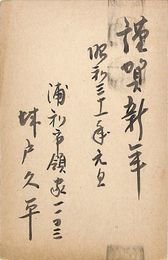 謹賀新年
昭和三十一年元旦
浦和市領家一一三三
城戸久平